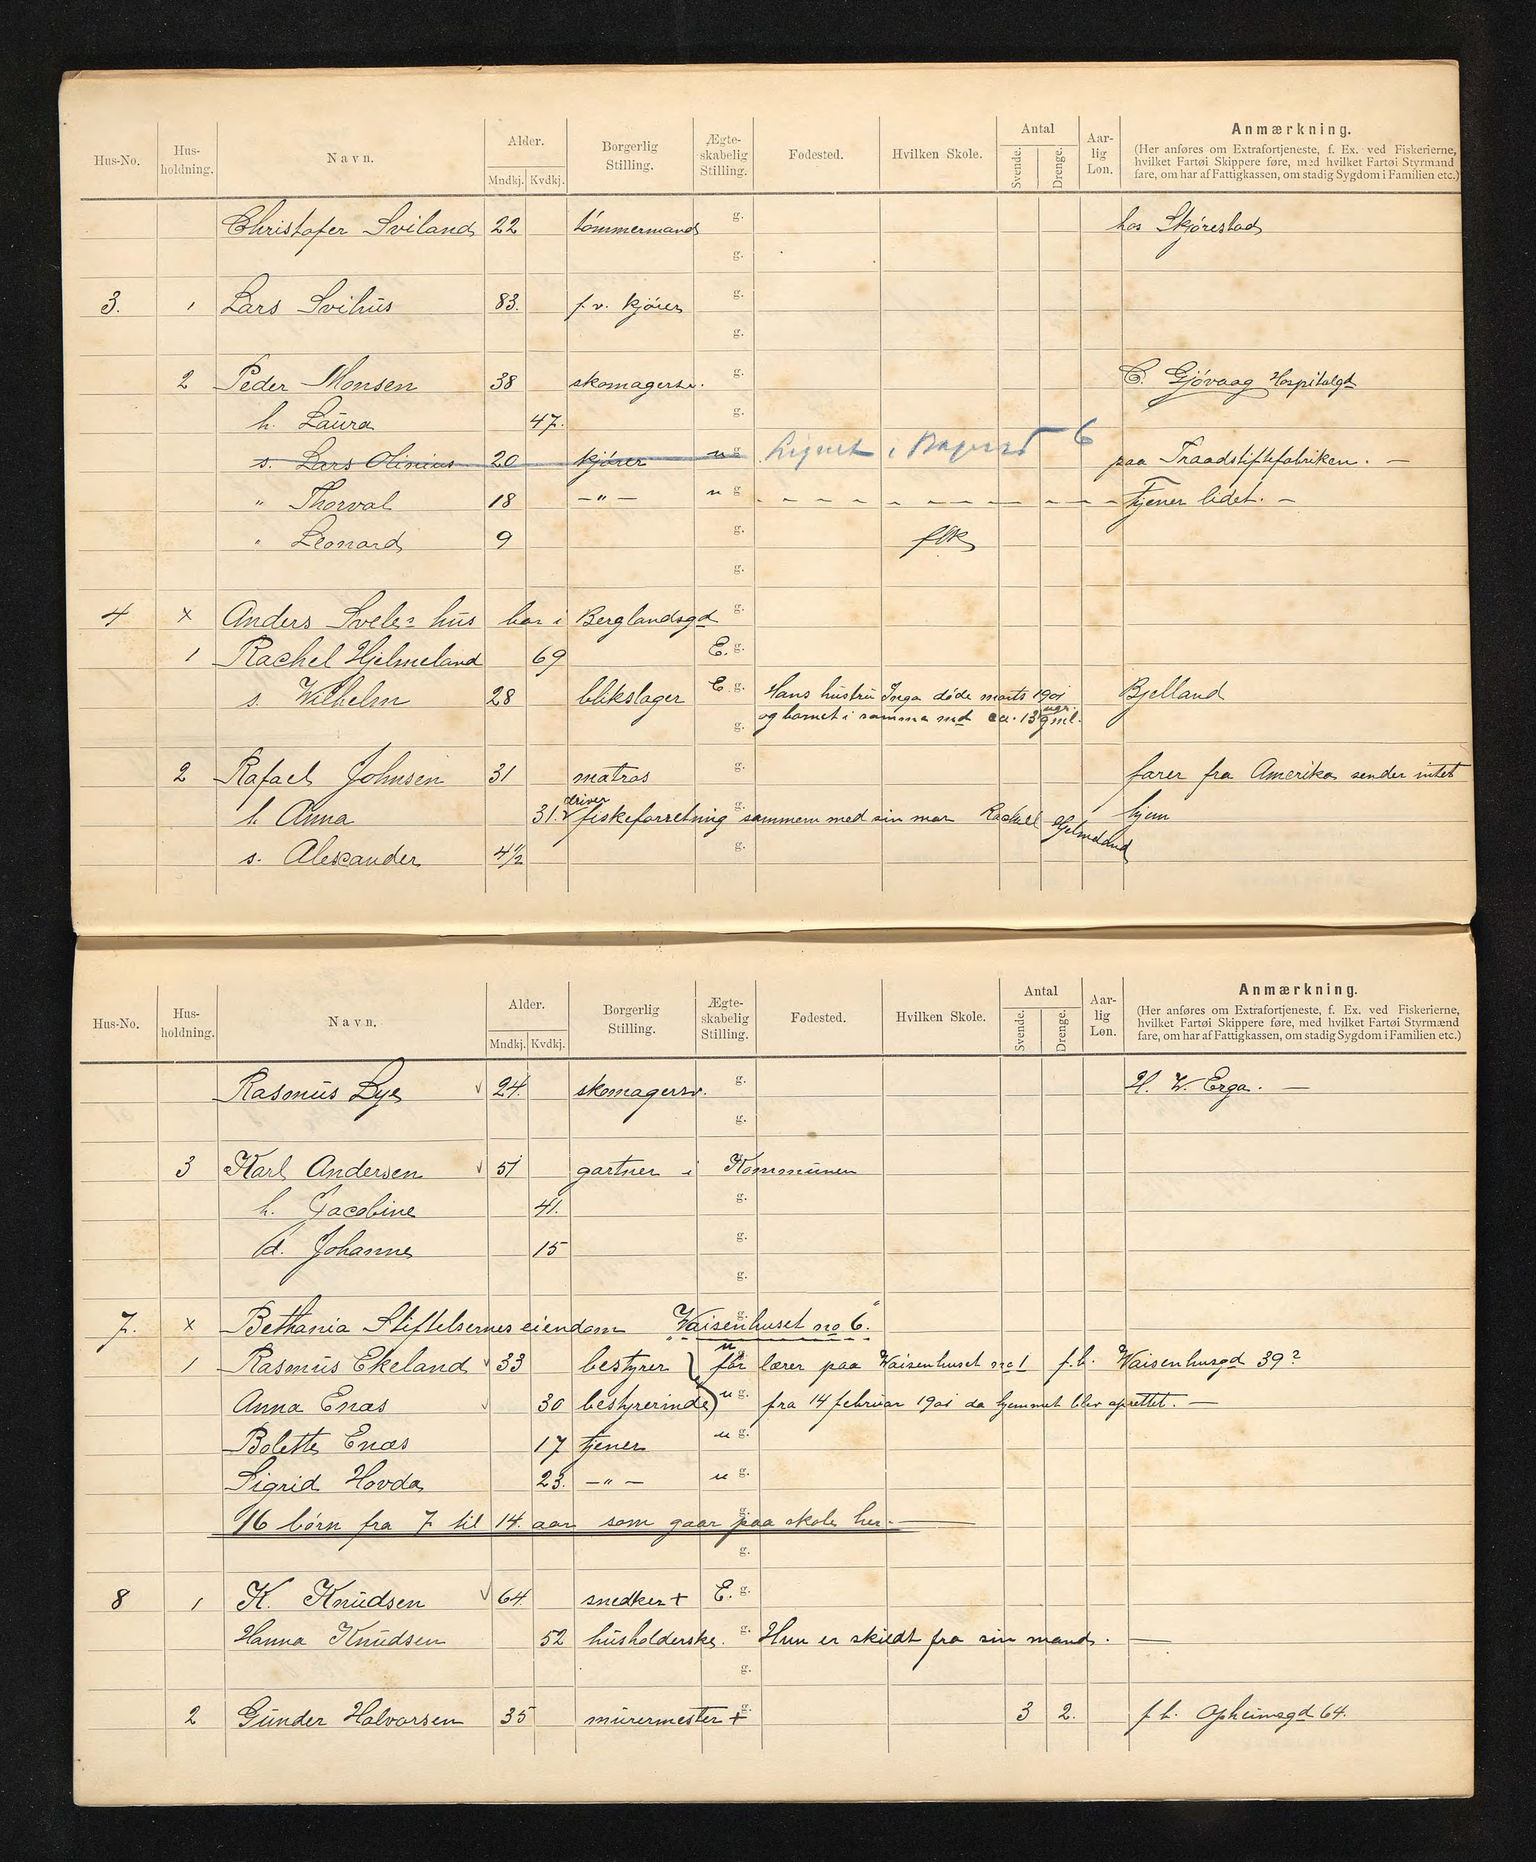 Hus-No. Hus-holdning. Navn. Alder. Mndkj. Kvdkj. Borgerlig Stilling. Ægte-skabelig Stilling. Fødested. Hvilken Skole. Antal Svende. Drenge. Aar-lig Løn. Anmærkning.
(Her anføres om Extrafortjeneste, f. Ex. ved Fiskerierne,
hvilket Fartøi Skippere føre, med hvilket Fartøi Styrmænd
fare, om har af Fattigkassen, om stadig Sygdom i Familien etc.)
Christofer Sviland 22 tømmermand g. hos Skjørestad
g.
3. 1 Lars Svihus 83. f. v. kjører g.
g.
2 Peder Monsen 38 skomagersv. g. C. Gjøvaag Hospitalgd
h. Laura 47. g.
s. Lars Olinius 20 kjører u g. i 6 paa Traadstiftefabriken. —
" Thorval 18 — " — u g. Tjener lidet. —
" Leonard 9 g. flk
g.
4 x Anders Svele's hus bor i Berglandsgd g.
1 Rachel Hjelmeland 69 E. g.
s. Wilhelm 28 blikslager E. g. Hans hustru Inga døde marts 1901 Bjelland
g. og barnet i samme md ca. 13 ugr. gml.
2 Rafael Johnsen 31 matros g. farer fra Amerika sender intet
h. Anna 31. driver fiskeforretning sammen med sin mor Rachel Hjelmeland hjem
s. Alexander 4 1/2 g.
Hus-No. Hus-holdning. Navn. Alder. Mndkj. Kvdkj. Borgerlig Stilling. Ægte-skabelig Stilling. Fødested. Hvilken Skole. Antal Svende. Drenge. Aar-lig Løn. Anmærkning.
(Her anføres om Extrafortjeneste, f. Ex. ved Fiskerierne,
hvilket Fartøi Skippere føre, med hvilket Fartøi Styrmænd
fare, om har af Fattigkassen, om stadig Sygdom i Familien etc.)
Rasmus Lye 24. skomagersv. g. H. W. Erga. —
g.
3 Karl Andersen 51 gartner i Kommunen
h. Jacobine 41. g.
d. Johanne 15 g.
g.
7. x Bethania Stiftelsernes eiendom "Waisenhuset no 6."
1 Rasmus Ekeland 33 bestyrer u før lærer paa Waisenhuset no 1 f.b. Waisenhusgd 39?
Anna Enæs 30 bestyrerinde u g. fra 14 februar 1901 da hjemmet blev oprettet. —
Bolette Enæs 17 tjener u g.
Sigrid Hovda 23. — " — u g.
16 børn fra 7 til 14. aar som gaar paa skole her. —
g.
8 1 K. Knudsen 64 snedker + E. g.
Hanna Knudsen 52 husholderske. g. Hun er skildt fra sin mand. —
g.
2 Gunder Halvorsen 35 murermester + g. 3 2. f. b. Opheimsgd 64.